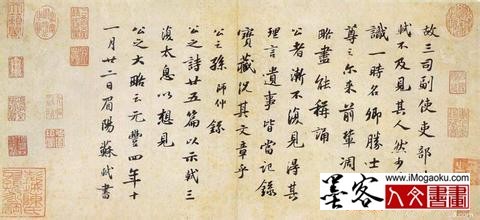 故三司副使吏部
軾不及見其人然少
識一時名卿勝士
尊之尔来前輩凋
略盡能稱誦
公者漸不復見得其
理言遺事皆當記録
寶藏況其文章乎
公之孫師仲録
公之詩廿五篇以示軾三
復太息以想見
公之大略云元豐四年十
一月廿二日眉陽蘇軾書
墨客
www.iMogaoku.com
人文書畫